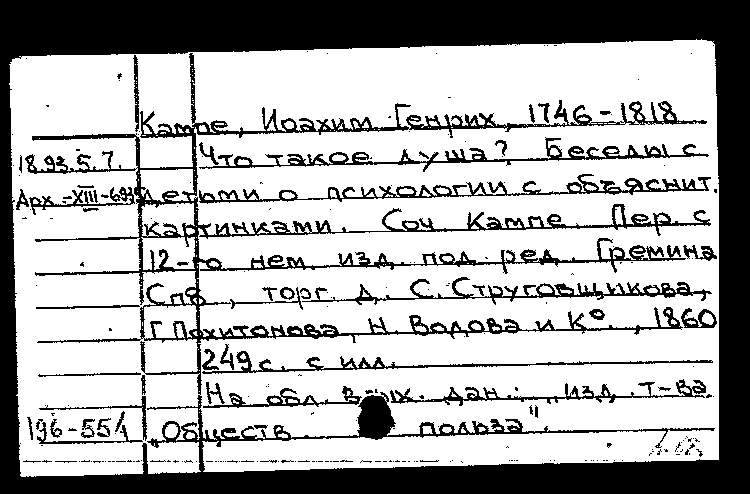 Кампе, Иоахим Генрих, 1746-1818
18.93.5.7. Что такое душа? Беседы с
Арх.-XIII- детьми о психологии с объяснит.
картинками. Соч. Кампе. Пер. с
12-го нем. изд. под ред. Гремина
Спб, торг. д. С. Струговщикова,
Г. Похитонова, Н. Водова и К°., 1860
249 с. с илл.
На обл. вых. дан.: „изд. т-ва
196-554 „Обществ. польза".